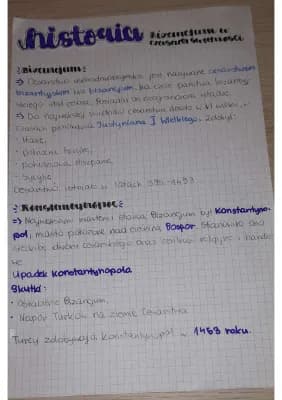 historia Bizancjum w
czasach świetności
Bizancjum:
=> Cesarstwo wschodniorzymskie jest nazywane cesarstwem
bizantyjskim lub bizancjum. Na czele państwa bizantyj-
skiego stał cesarz. Posiadał on nieograniczoną władzę.
=> Do największej świetności cesarstwo doszło w VI wieku, w
czasach panowania Justyniana I Wielkiego. Zdobył:
• Italię,
• północną Afrykę,
• południową Hiszpanię,
• Sycylię
Cesarstwo istniało w latach 395-1453
Konstantynopol:
=> Największym miastem stolicą Bizancjum był Konstantyno-
pol, miasto położone nad cieśniną Bosfor. Stanowiło ono
siedzibę dworu cesarskiego oraz centrum religijne i handlo-
we
Upadek Konstantynopola
Skutki:
• Osłabienie Bizancjum,
• Napór Turków na ziemie Cesarstwa
Turcy zdobywają Konstantynopol w 1453 roku.